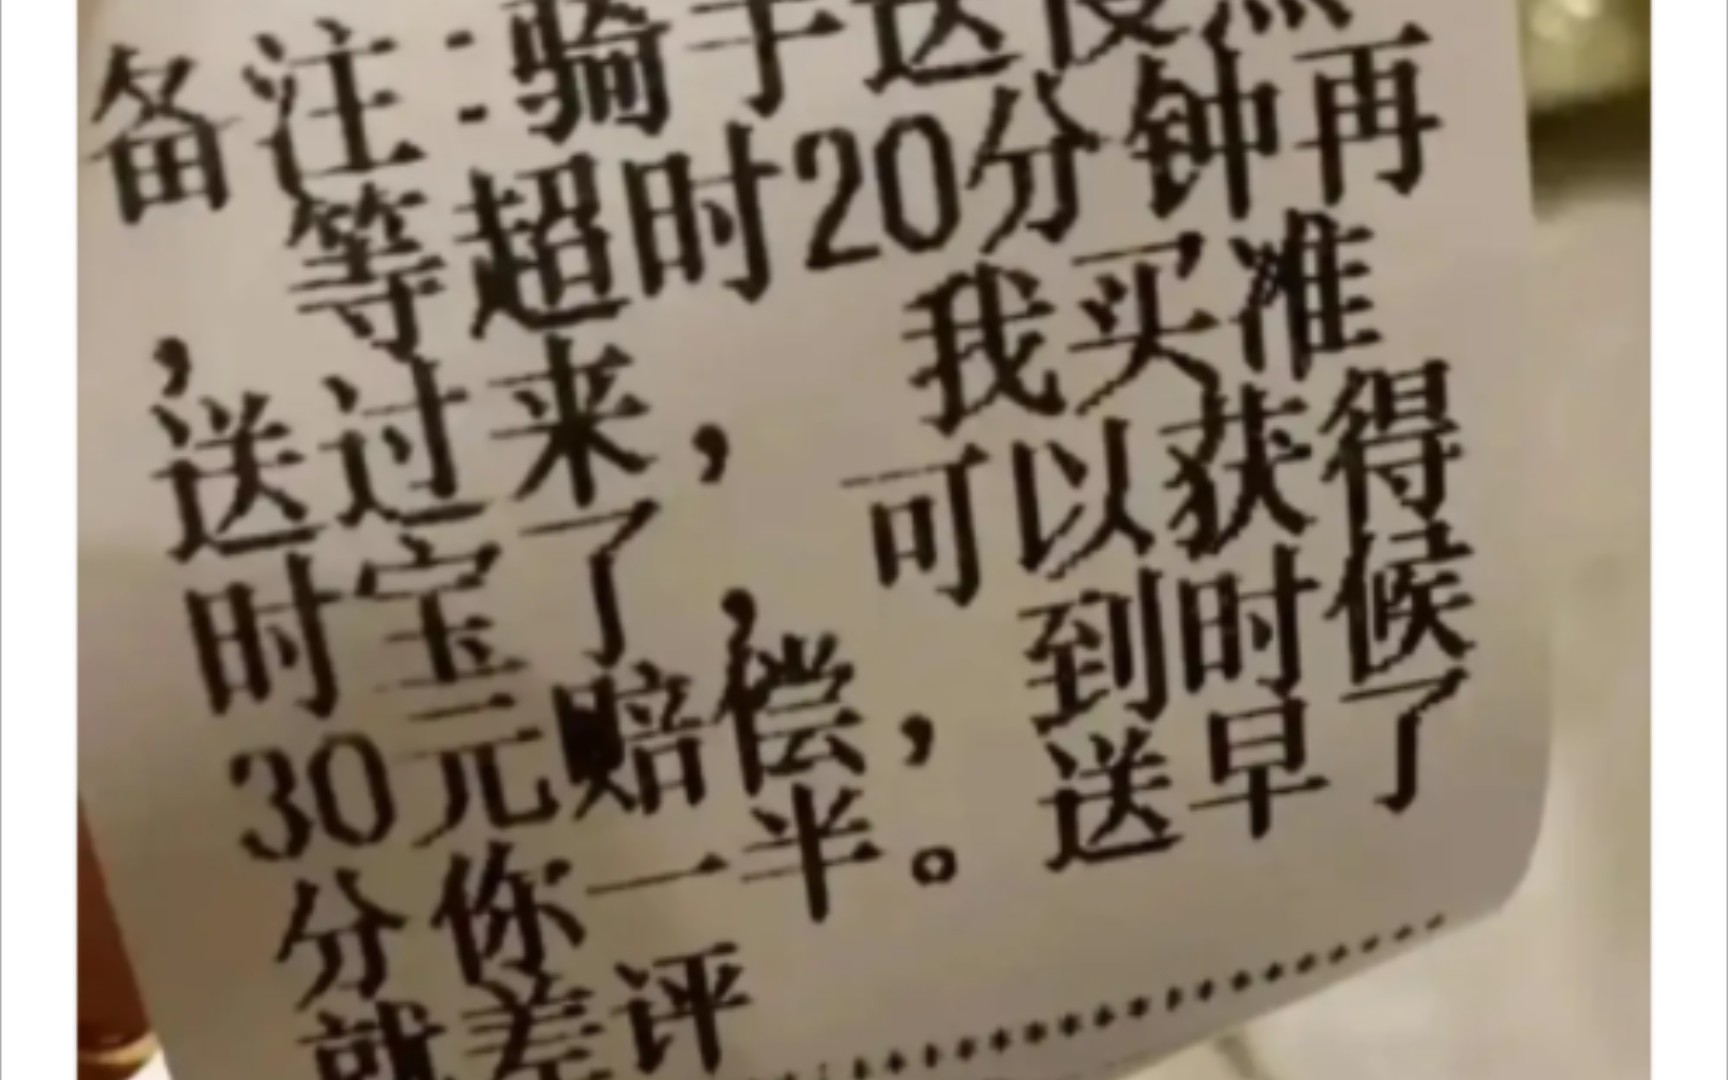 备注:骑手送慢点
，等超时20分钟再
送过来，我买准
时宝了，可以获得
30元赔偿，到时候
分你一半。送早了
就差评